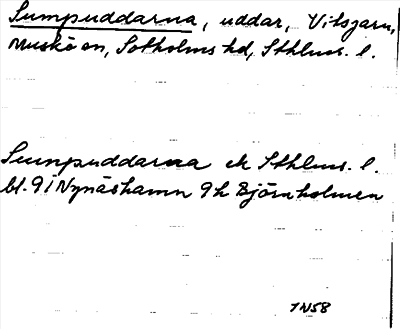 Sumpuddarna, uddar, Vitsgarn,
Muskö sn, Sotholms hd, Sthlms. l.
Sumpuddarna ek Sthlms. l.
bl. 91 Nynäshamn 9h Björnholmen
1N58